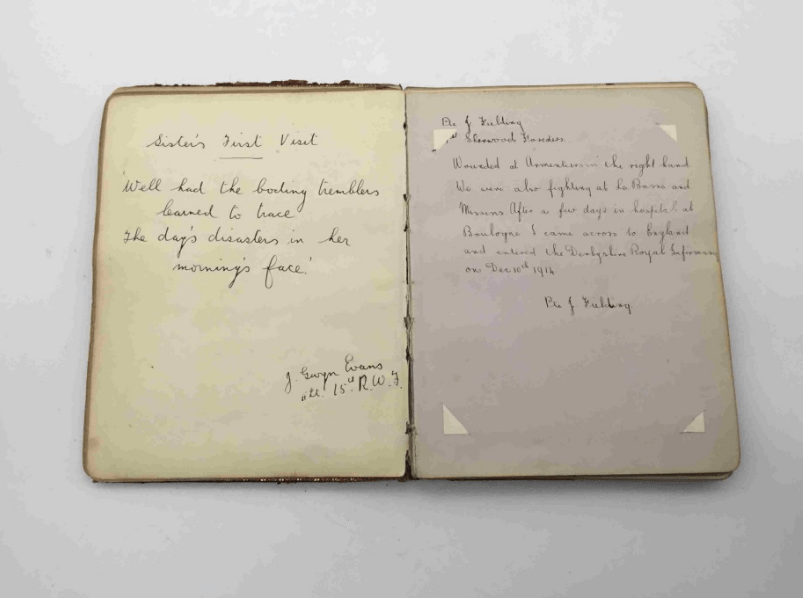 Sister's First Visit
'Well had the boding tremblers
learned to trace
The day's disasters in her
morning's face.'
J. Gwyn Evans
15th R.W.F.
Pte J Fielding
Sherwood Foresters
Wounded at Armentieres in the right hand
We were also fighting at La Basse and
Messines After a few days in hospital at
Boulogne I came across to England
and entered the Derbyshire Royal Infirmary
on Dec 10th 1914
Pte J. Fielding